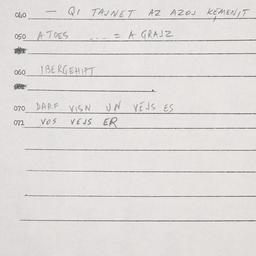 040 — QI TAJNET AZ AZOJ KEMENIT
050 ATOES ... = A GRAJZ
060 IBERGEHIPT
070 DARF VISN UN VEJS ES
071 VOS VEJS ER